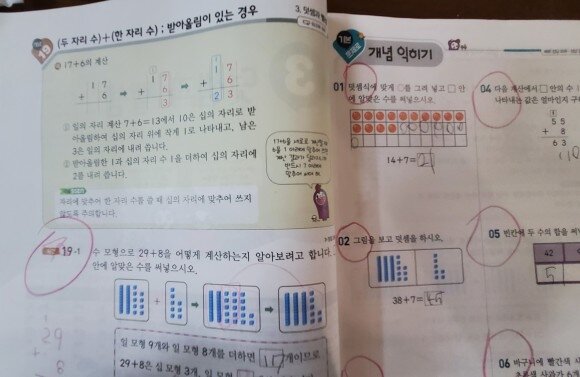 (두 자리 수)+(한 자리 수) ; 받아올림이 있는 경우
3. 덧셈과
19
17+6의 계산
1 7
+ 6
1
1 7
+ 6
3
1
1 7
+ 6
2 3
① 일의 자리 계산 7+6=13에서 10은 십의 자리로 받
아올림하여 십의 자리 위에 작게 1로 나타내고, 남은
3은 일의 자리에 내려 씁니다.
② 받아올림한 1과 십의 자리 수 1을 더하여 십의 자리에
2를 내려 씁니다.
자리에 맞추어 한 자리 수를 쓸 때 십의 자리에 맞추어 쓰지
않도록 주의합니다.
19-1
수 모형으로 29+8을 어떻게 계산하는지 알아보려고 합니다.
안에 알맞은 수를 써넣으시오.
일 모형 9개와 일 모형 8개를 더하면 17개이므로
29+8은 십 모형 3개, 일 모형
1
29
+ 8
기본
개념 익히기
01 덧셈식에 맞게 ○를 그려 넣고 □ 안
에 알맞은 수를 써넣으시오.
14+7=21
02 그림을 보고 덧셈을 하시오.
38+7=45
04 다음 계산에서 □ 안의 수 1
나타내는 값은 얼마인지 구
5 5
+ 8
6 3
05 빈칸에 두 수의 합을 써
42
5
06 바구니에 빨간색 사
초록색 사과가 6개